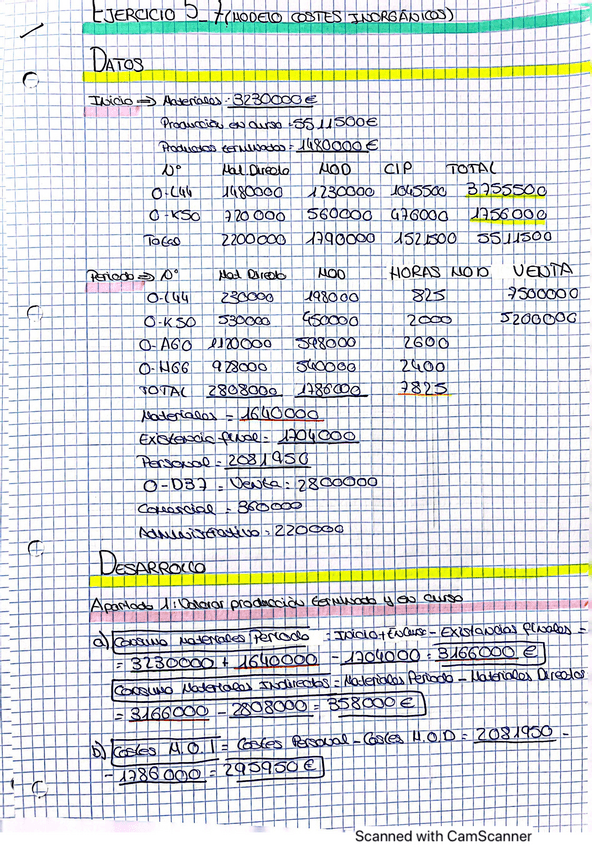 EJERCICIO 5_7 (MODELO COSTES INORGÁNICOS)
DATOS
Inicio => Materiales = 3230000 €
Producción en curso = 5511500€
Productos terminados = 1480000 €
Nº Mat Directo MOD CIP TOTAL
O-L44 1480000 1230000 1045500 3755500
O-K50 720000 560000 476000 1756000
Total 2200000 1790000 1521500 5511500
Periodo => Nº Mat Directo MOD HORAS MOD VENTA
O-L44 230000 198000 825 7500000
O-K50 530000 450000 2000 5200000
O-A60 1120000 598000 2600
O-N66 928000 540000 2400
TOTAL 2808000 1786000 7825
Materiales = 1640000
Existencia final = 1704000
Personal = 2081950
O-D37 = Venta = 2800000
Comercial = 360000
Administrativo = 220000
DESARROLLO
Apartado 1: Valorar producción terminada y en curso
a) Consumo Materiales Periodo = Inicio + En curso - Existencias finales =
= 3230000 + 1640000 - 1704000 = 3166000 €
Consumo Materiales Indirectos = Materiales Periodo - Materiales Directos
= 3166000 - 2808000 = 358000 €
b) Costes M.O.I = Costes Personal - Costes M.O.D = 2081950 -
- 1786000 = 295950 €
Scanned with CamScanner